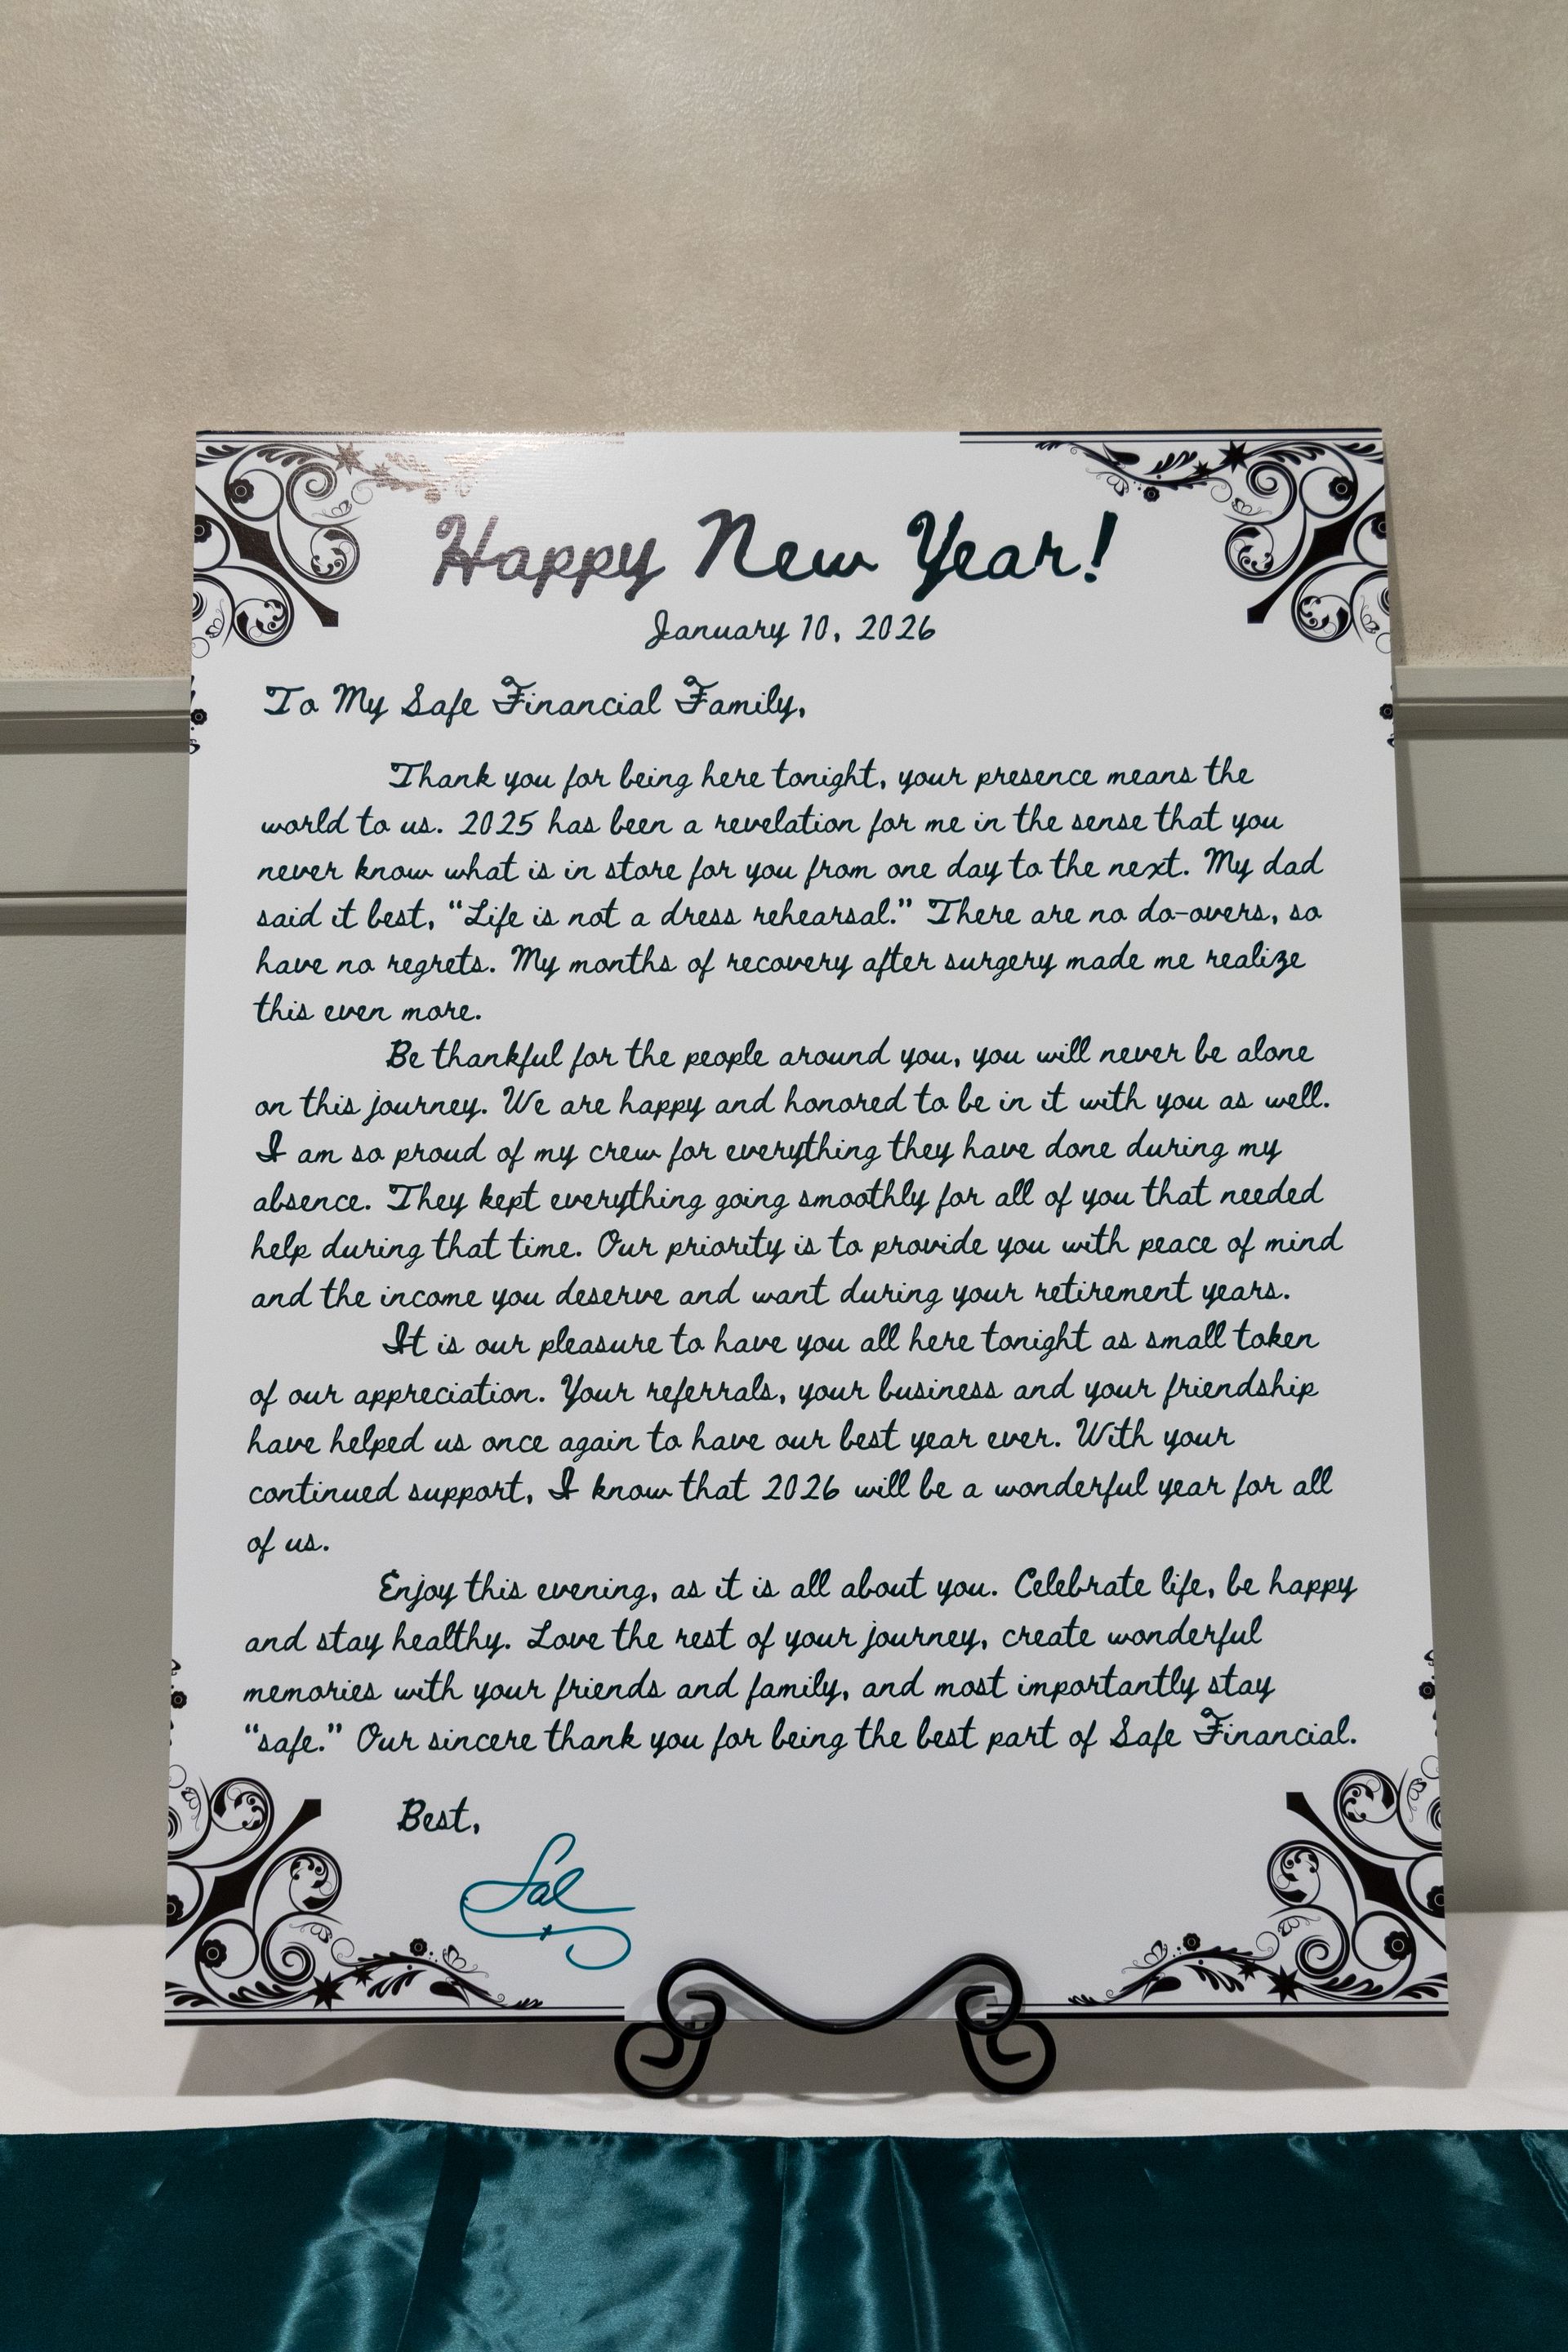 Happy New Year!
January 10, 2026
To My Safe Financial Family,
Thank you for being here tonight, your presence means the
world to us. 2025 has been a revelation for me in the sense that you
never know what is in store for you from one day to the next. My dad
said it best, “Life is not a dress rehearsal.” There are no do-overs, so
have no regrets. My months of recovery after surgery made me realize
this even more.
Be thankful for the people around you, you will never be alone
on this journey. We are happy and honored to be in it with you as well.
I am so proud of my crew for everything they have done during my
absence. They kept everything going smoothly for all of you that needed
help during that time. Our priority is to provide you with peace of mind
and the income you deserve and want during your retirement years.
It is our pleasure to have you all here tonight as small token
of our appreciation. Your referrals, your business and your friendship
have helped us once again to have our best year ever. With your
continued support, I know that 2026 will be a wonderful year for all
of us.
Enjoy this evening, as it is all about you. Celebrate life, be happy
and stay healthy. Love the rest of your journey, create wonderful
memories with your friends and family, and most importantly stay
“safe.” Our sincere thank you for being the best part of Safe Financial.
Best,
Sal